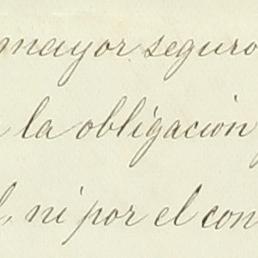 mayor seguro
la obligacion
ni por el con